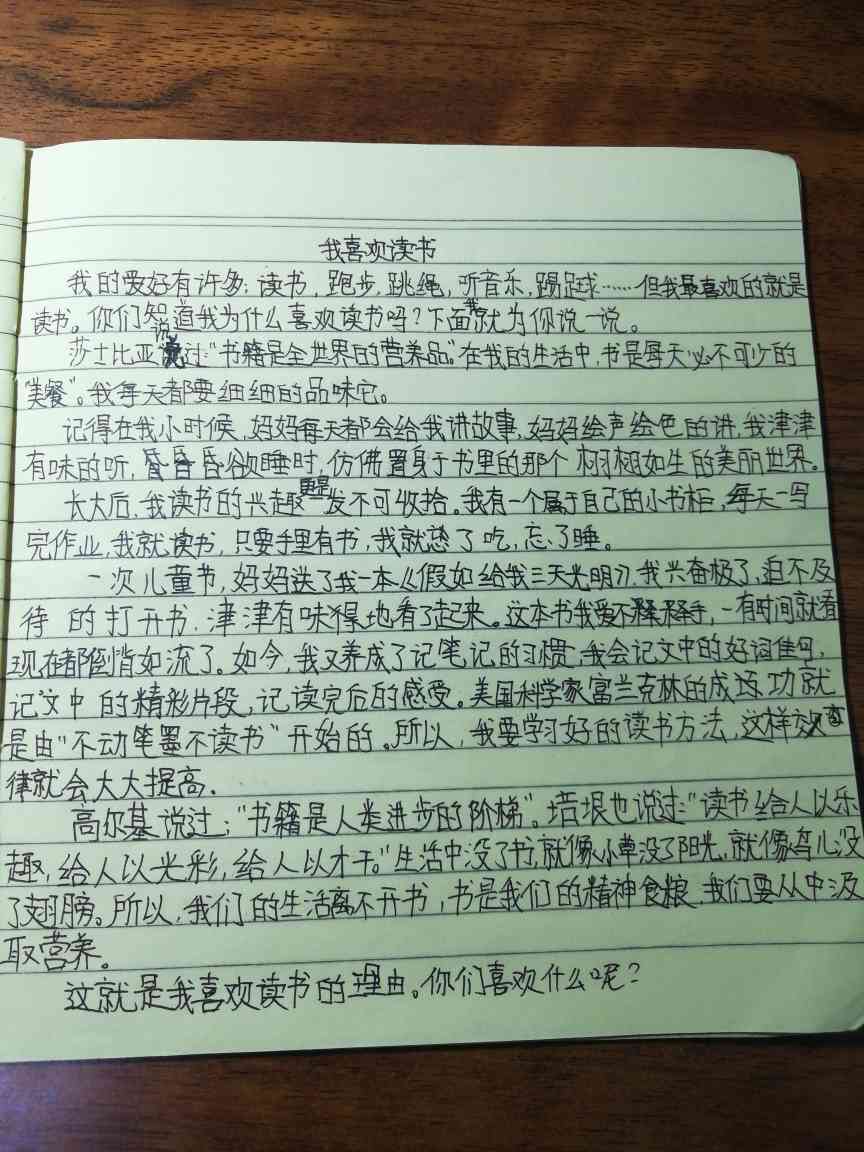 我喜欢读书
我的爱好有许多：读书，跑步，跳绳，听音乐，踢足球……但我最喜欢的就是
读书。你们知道我为什么喜欢读书吗？下面我就为你说一说。
莎士比亚说过：“书籍是全世界的营养品。”在我的生活中，书是每天必不可少的
“美餐”。我每天都要细细的品味它。
记得在我小时候，妈妈每天都会给我讲故事，妈妈绘声绘色的讲，我津津
有味的听，昏昏昏欲睡时，仿佛置身于书里的那个栩栩如生的美丽世界。
长大后，我读书的兴趣更是一发不可收拾。我有一个属于自己的小书柜，每天一写
完作业，我就读书，只要手里有书，我就忘了吃，忘了睡。
一次儿童节，妈妈送了我一本《假如给我三天光明》，我兴奋极了，迫不及
待的打开书，津津有味得地看了起来。这本书我爱不释手，一有时间就看
现在都倒背如流了。如今，我又养成了记笔记的习惯，我会记文中的好词佳句，
记文中的精彩片段，记读完后的感受。美国科学家富兰克林的成功就
是由“不动笔墨不读书”开始的。所以，我要学习好的读书方法，这样效
律就会大大提高.
高尔基说过：“书籍是人类进步的阶梯”。培垠也说过：“读书给人以乐
趣，给人以光彩，给人以才干。”生活中没了书，就像小草没了阳光，就像鸟儿没
了翅膀。所以，我们的生活离不开书，书是我们的精神食粮，我们要从中汲
取营养。
这就是我喜欢读书的理由。你们喜欢什么呢？